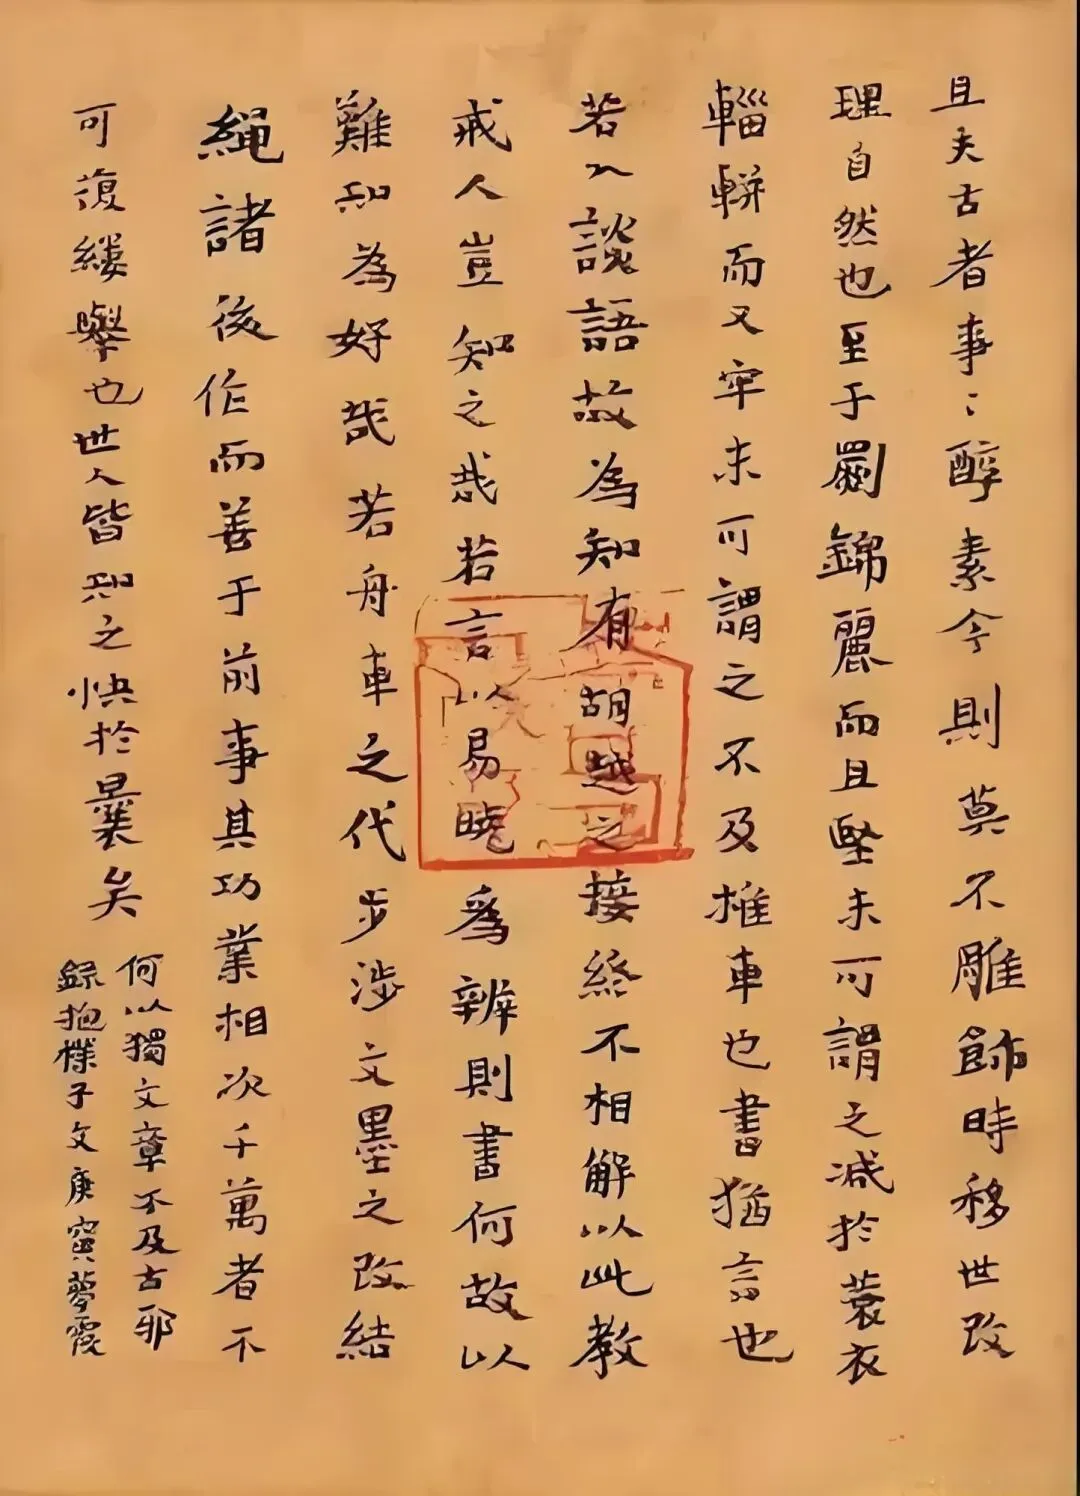 且夫古者事〻醇素今則莫不雕飾時移世改
理自然也至于罽錦麗而且堅未可謂之减於蓑衣
輜軿而又牢未可謂之不及椎車也書猶言也
若人談語故為知有胡越之接終不相解以此教
戒人豈知之哉若言以易曉為辨則書何故以
難知為好哉若舟車之代步涉文墨之改結
繩諸後作而善于前事其功業相次千萬者不
可復縷舉也世人皆知之快於曩矣
何以獨文章不及古邪
錄抱樸子文庚寅夢霞